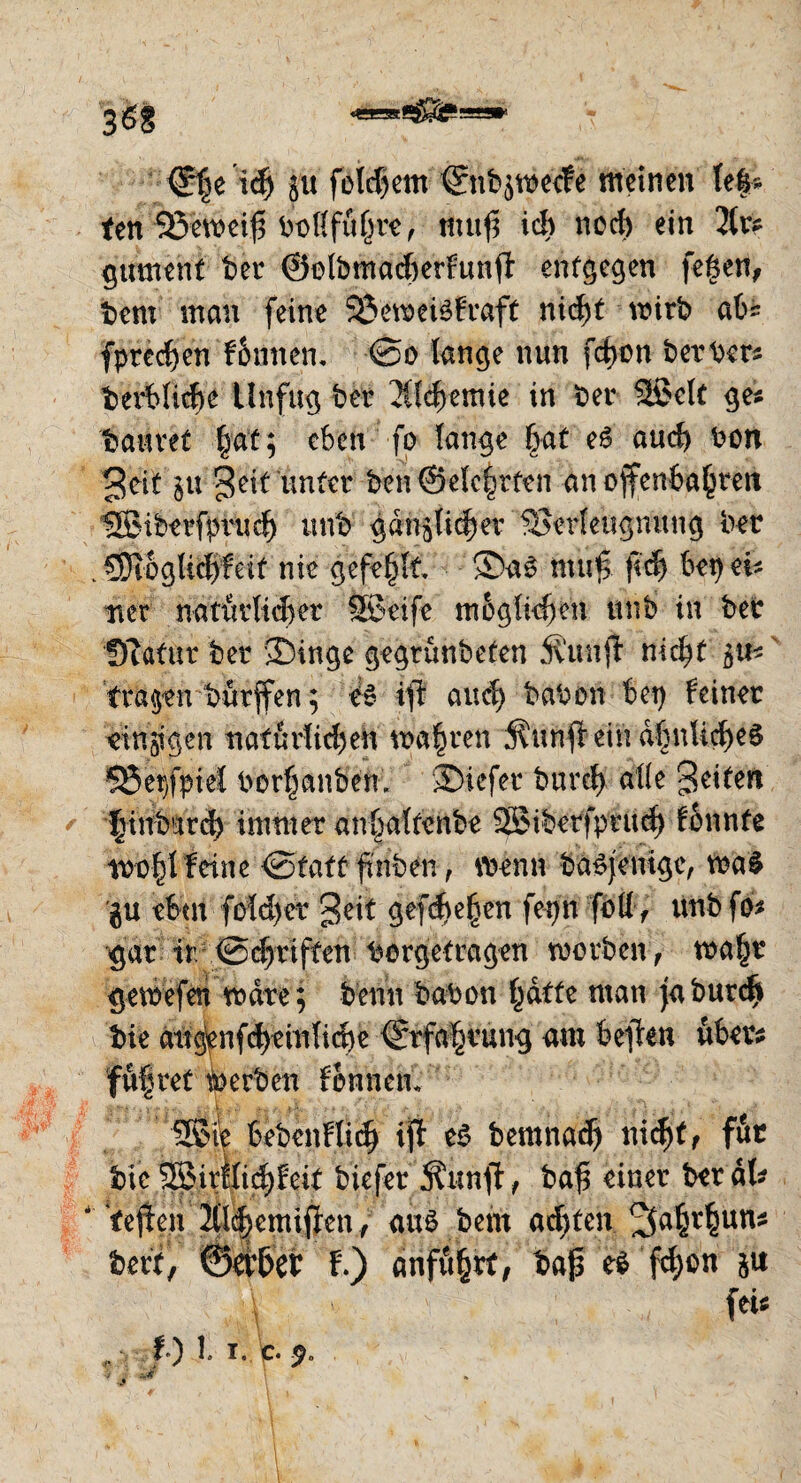 368
Ehe ich zu solchem Endzwecke meinen letz-
ten Beweiß vollführe, muß ich noch ein Ar-
gument der Goldmacherkunst entgegen setzen,
dem man seine Beweiskraft nicht wird ab-
sprechen können. So lange nun schon der ver-
derbliche Unfug der Alchemie in der Welt ge-
dauret hat; eben so lange hat es auch von
Zeit zu Zeit unter den Gelehrten an offenbahren
Widerspruch und gänzlicher Verleugnung der
Möglichkeit nie gefehlt. Das muß sich bey ei-
ner natürlicher Weise möglichen und in der
Natur der Dinge gegründeten Kunst nicht zu-
tragen dürffen; es ist auch davon bey keiner
einzigen natürlichen wahren Kunst ein ähnliches
Beyspiel vorhanden. Dieser durch alle Zeiten
hindurch immer anhaltende Widerspruch könnte
wohl keine Statt finden, wenn dasjenige, was
zu eben solcher Zeit geschehen seyn soll, und so-
gar in Schriften vorgetragen worden, wahr
gewesen wäre; denn davon hätte man ja durch
die augenscheinliche Erfahrung am besten über-
führet werden können.
Wie bedenklich ist es demnach nicht, für
die Wirklichkeit dieser Kunst, daß einer der äl-
testen Alchemisten, aus dem achten Jahrhun-
dert, Gerber k.) anführt, daß es schon zu
sei-
k.) l. 1. c. 9.